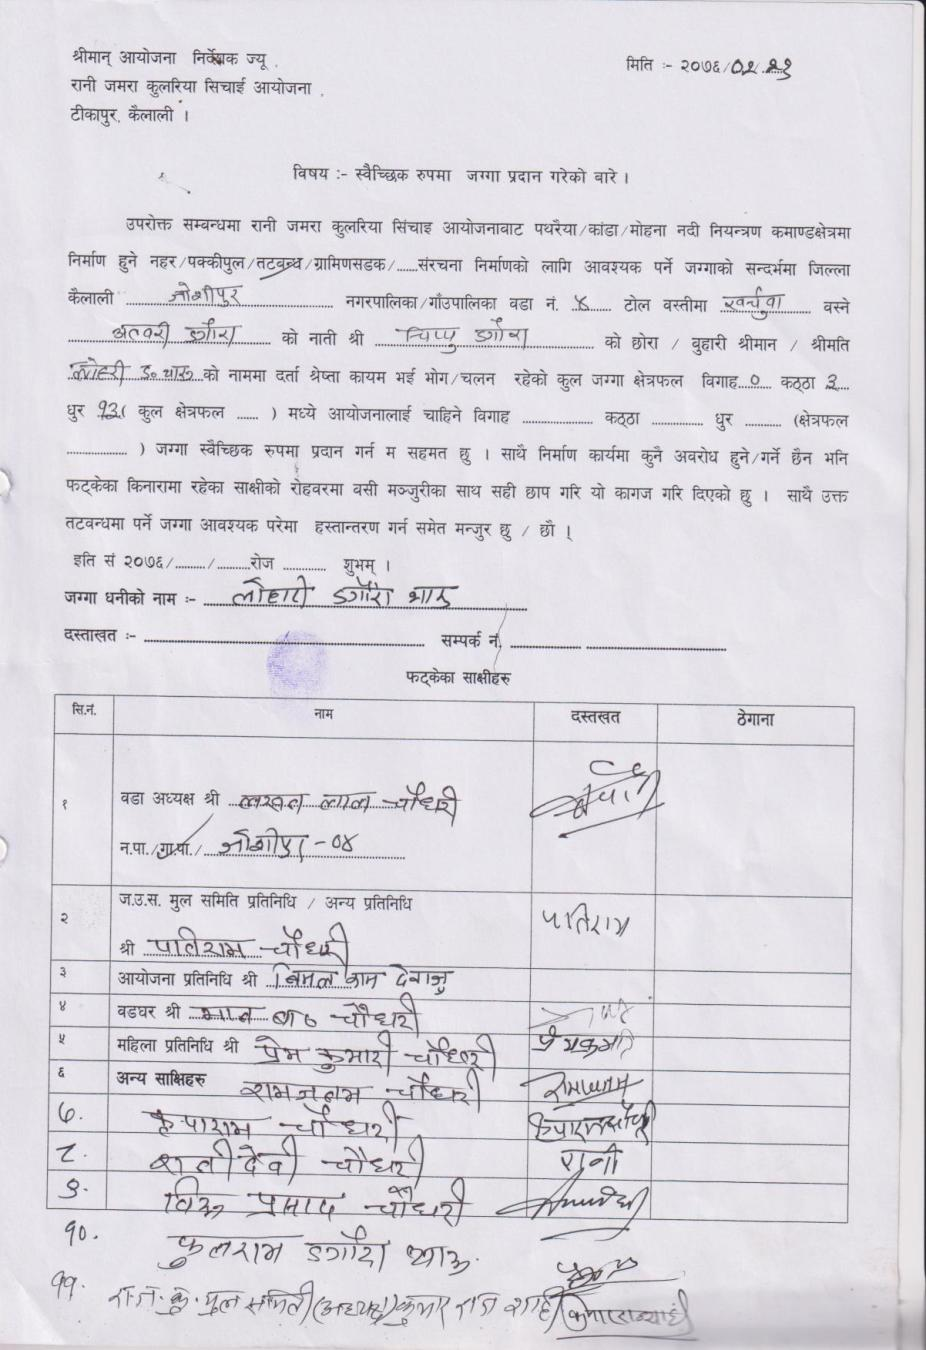 श्रीमान् आयोजना निर्देशक ज्यू
मिति :- २०७६/०२.२३
रानी जमरा कुलरिया सिचाई आयोजना
टीकापुर, कैलाली ।
विषय :- स्वैच्छिक रुपमा जग्गा प्रदान गरेको बारे ।
उपरोक्त सम्बन्धमा रानी जमरा कुलरिया सिंचाइ आयोजनावाट पथरैया/कांडा/मोहना नदी नियन्त्रण कमाण्डक्षेत्रमा
निर्माण हुने नहर/पक्कीपुल/तटबन्ध/ग्रामिणसडक/......संरचना निर्माणको लागि आवश्यक पर्ने जग्गाको सन्दर्भमा जिल्ला
कैलाली जोशीपुर नगरपालिका/गाँउपालिका वडा नं. ४ टोल वस्तीमा वस्ने
डगौरा को नाती श्री डगौरा को छोरा / बुहारी श्रीमान / श्रीमति
को नाममा दर्ता श्रेष्ता कायम भई भोग/चलन रहेको कुल जग्गा क्षेत्रफल विगाह...०.. कठ्ठा ३...
धुर १३( कुल क्षेत्रफल ...... ) मध्ये आयोजनालाई चाहिने विगाह .................... कठ्ठा .............. धुर .......... (क्षेत्रफल
................. ) जग्गा स्वैच्छिक रुपमा प्रदान गर्न म सहमत छु । साथै निर्माण कार्यमा कुनै अवरोध हुने/गर्ने छैन भनि
फट्केका किनारामा रहेका साक्षीको रोहवरमा वसी मञ्जुरीका साथ सही छाप गरि यो कागज गरि दिएको छु । साथै उक्त
तटवन्धमा पर्ने जग्गा आवश्यक परेमा हस्तान्तरण गर्न समेत मन्जुर छु / छौ ।
इति सं २०७६/........./.........रोज ............ शुभम् ।
जग्गा धनीको नाम :- लोहारी डगौरा थारु
दस्ताखत :- .................... सम्पर्क नं. ....................
फट्केका साक्षीहरु
सि.नं. नाम दस्तखत ठेगाना
१ वडा अध्यक्ष श्री लखन लाल चौधरी
न.पा./गा.पा./ जोशीपुर -०४
२ ज.उ.स. मुल समिति प्रतिनिधि / अन्य प्रतिनिधि
श्री पातिराम चौधरी पातिराम
३ आयोजना प्रतिनिधि श्री बिमल काम देवाजु
४ वडघर श्री चौधरी
५ महिला प्रतिनिधि श्री प्रेम कुमारी चौधरी प्रेमकुमारी
६ अन्य साक्षिहरु चौधरी
७. कृपाराम चौधरी
८. चौधरी
९. प्रसाद चौधरी
१०. फुलराम डगौरा थारु
११. रा.ज.कु. मूल समिती (अध्यक्ष) कुमार राज शाही